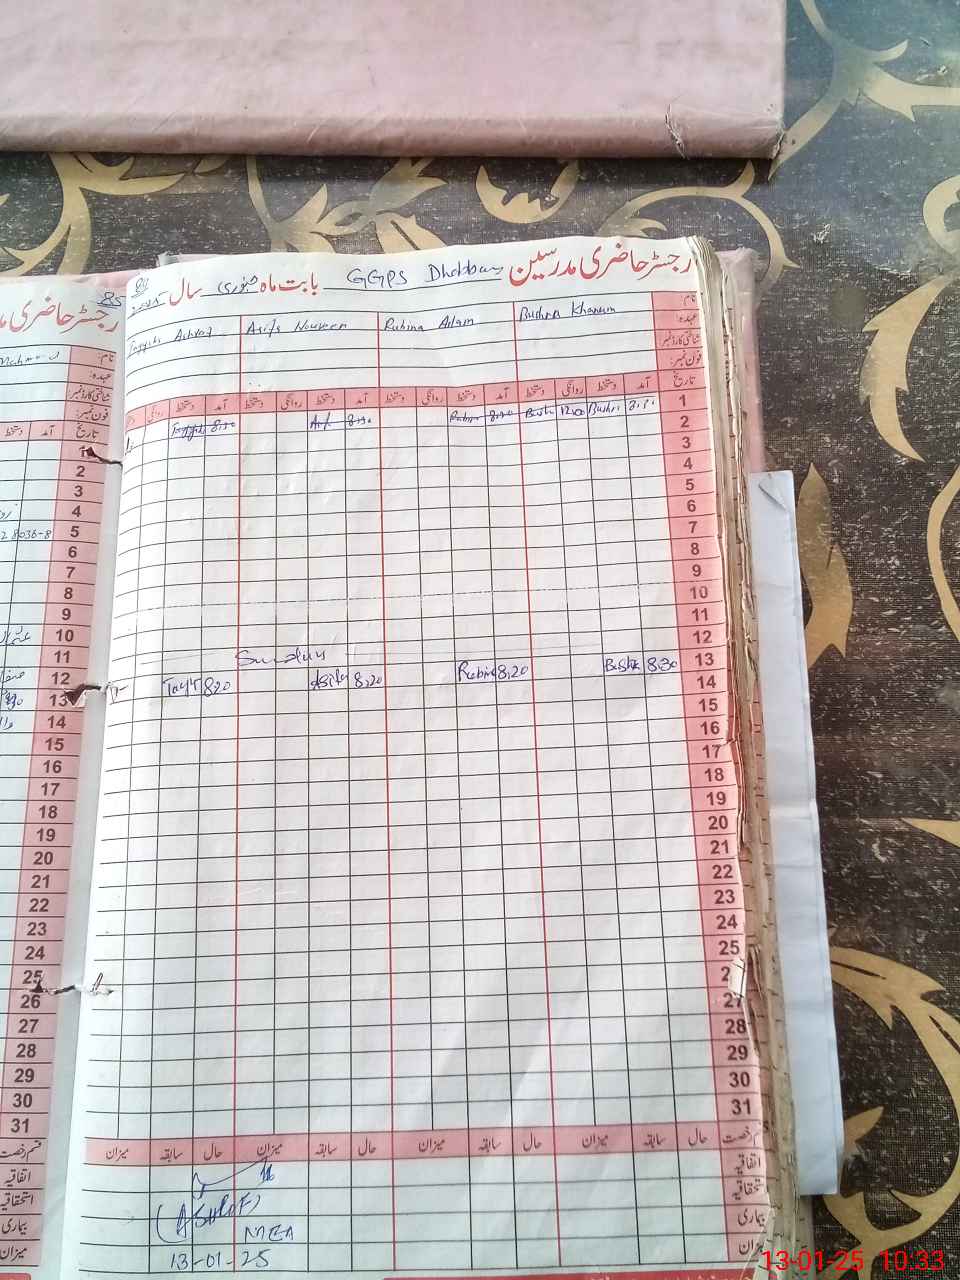 رجسٹر حاضری مدرسین GGPS بابت ماہ جنوری سال
نام: Bushra Khanum Rubina Aslam Asifa Noureen Tayyiba Ashraf
عہدہ:
شناختی کارڈ نمبر:
فون نمبر:
تاریخ آمد دستخط روانگی دستخط آمد دستخط روانگی دستخط آمد دستخط روانگی دستخط آمد دستخط روانگی
1 Bushr 12:00 Bush 8:20 Rubin 8:30 Asif 8:20 Tayyib
2
3
4
5
6
7
8
9
10
11
12 Sunday
13 8:30 Bushr 8:20 Rubin 8:20 Asifa 8:20 Tayy
14
15
16
17
18
19
20
21
22
23
24
25
27
28
29
30
31
قسم رخصت حال سابقہ میزان حال سابقہ میزان حال سابقہ میزان حال سابقہ میزان
اتفاقیہ
استحقاقیہ
بیماری
میزان
(ASHRAF)
MEA
13-01-25
85
رجسٹر حاضری
نام:
عہدہ:
شناختی کارڈ نمبر:
فون نمبر:
تاریخ آمد دستخط
1
2
3
4
5 8036-8
6
7
8
9
10
11
12
13
14
15
16
17
18
19
20
21
22
23
24
25
26
27
28
29
30
31
قسم رخصت
اتفاقیہ
استحقاقیہ
بیماری
میزان
13-01-25 10:33